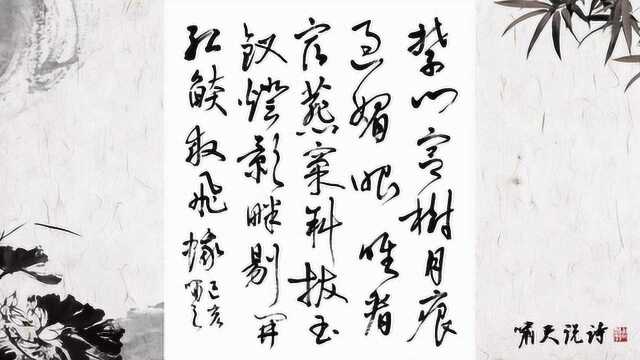 禁门宫樹月痕
过媚眼唯看
宿燕窠斜拔玉
钗燈影畔剔开
红焰救飞蛾 己亥
啸天说诗